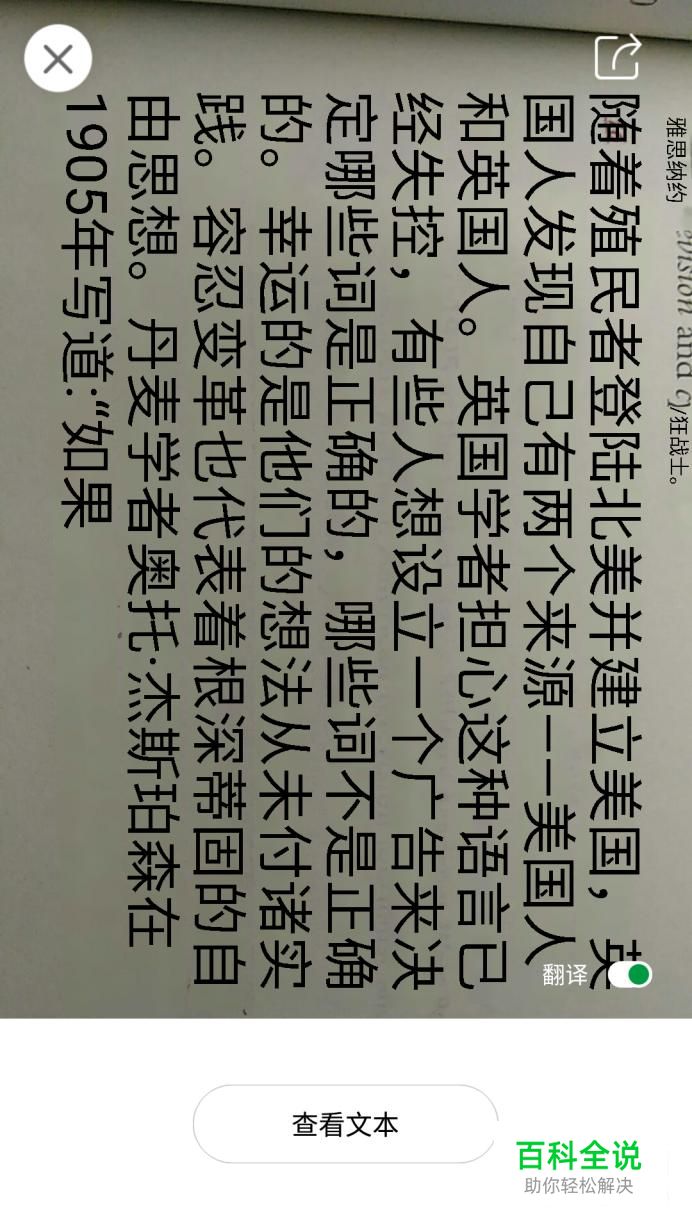 雅思纳约
/狂战士。
随着殖民者登陆北美并建立美国，英
国人发现自己有两个来源——美国人
和英国人。英国学者担心这种语言已
经失控，有些人想设立一个广告来决
定哪些词是正确的，哪些词不是正确
的。幸运的是他们的想法从未付诸实
践。容忍变革也代表着根深蒂固的自
由思想。丹麦学者奥托·杰斯珀森在
1905年写道:“如果
翻译
查看文本
百科全说
助你轻松解决